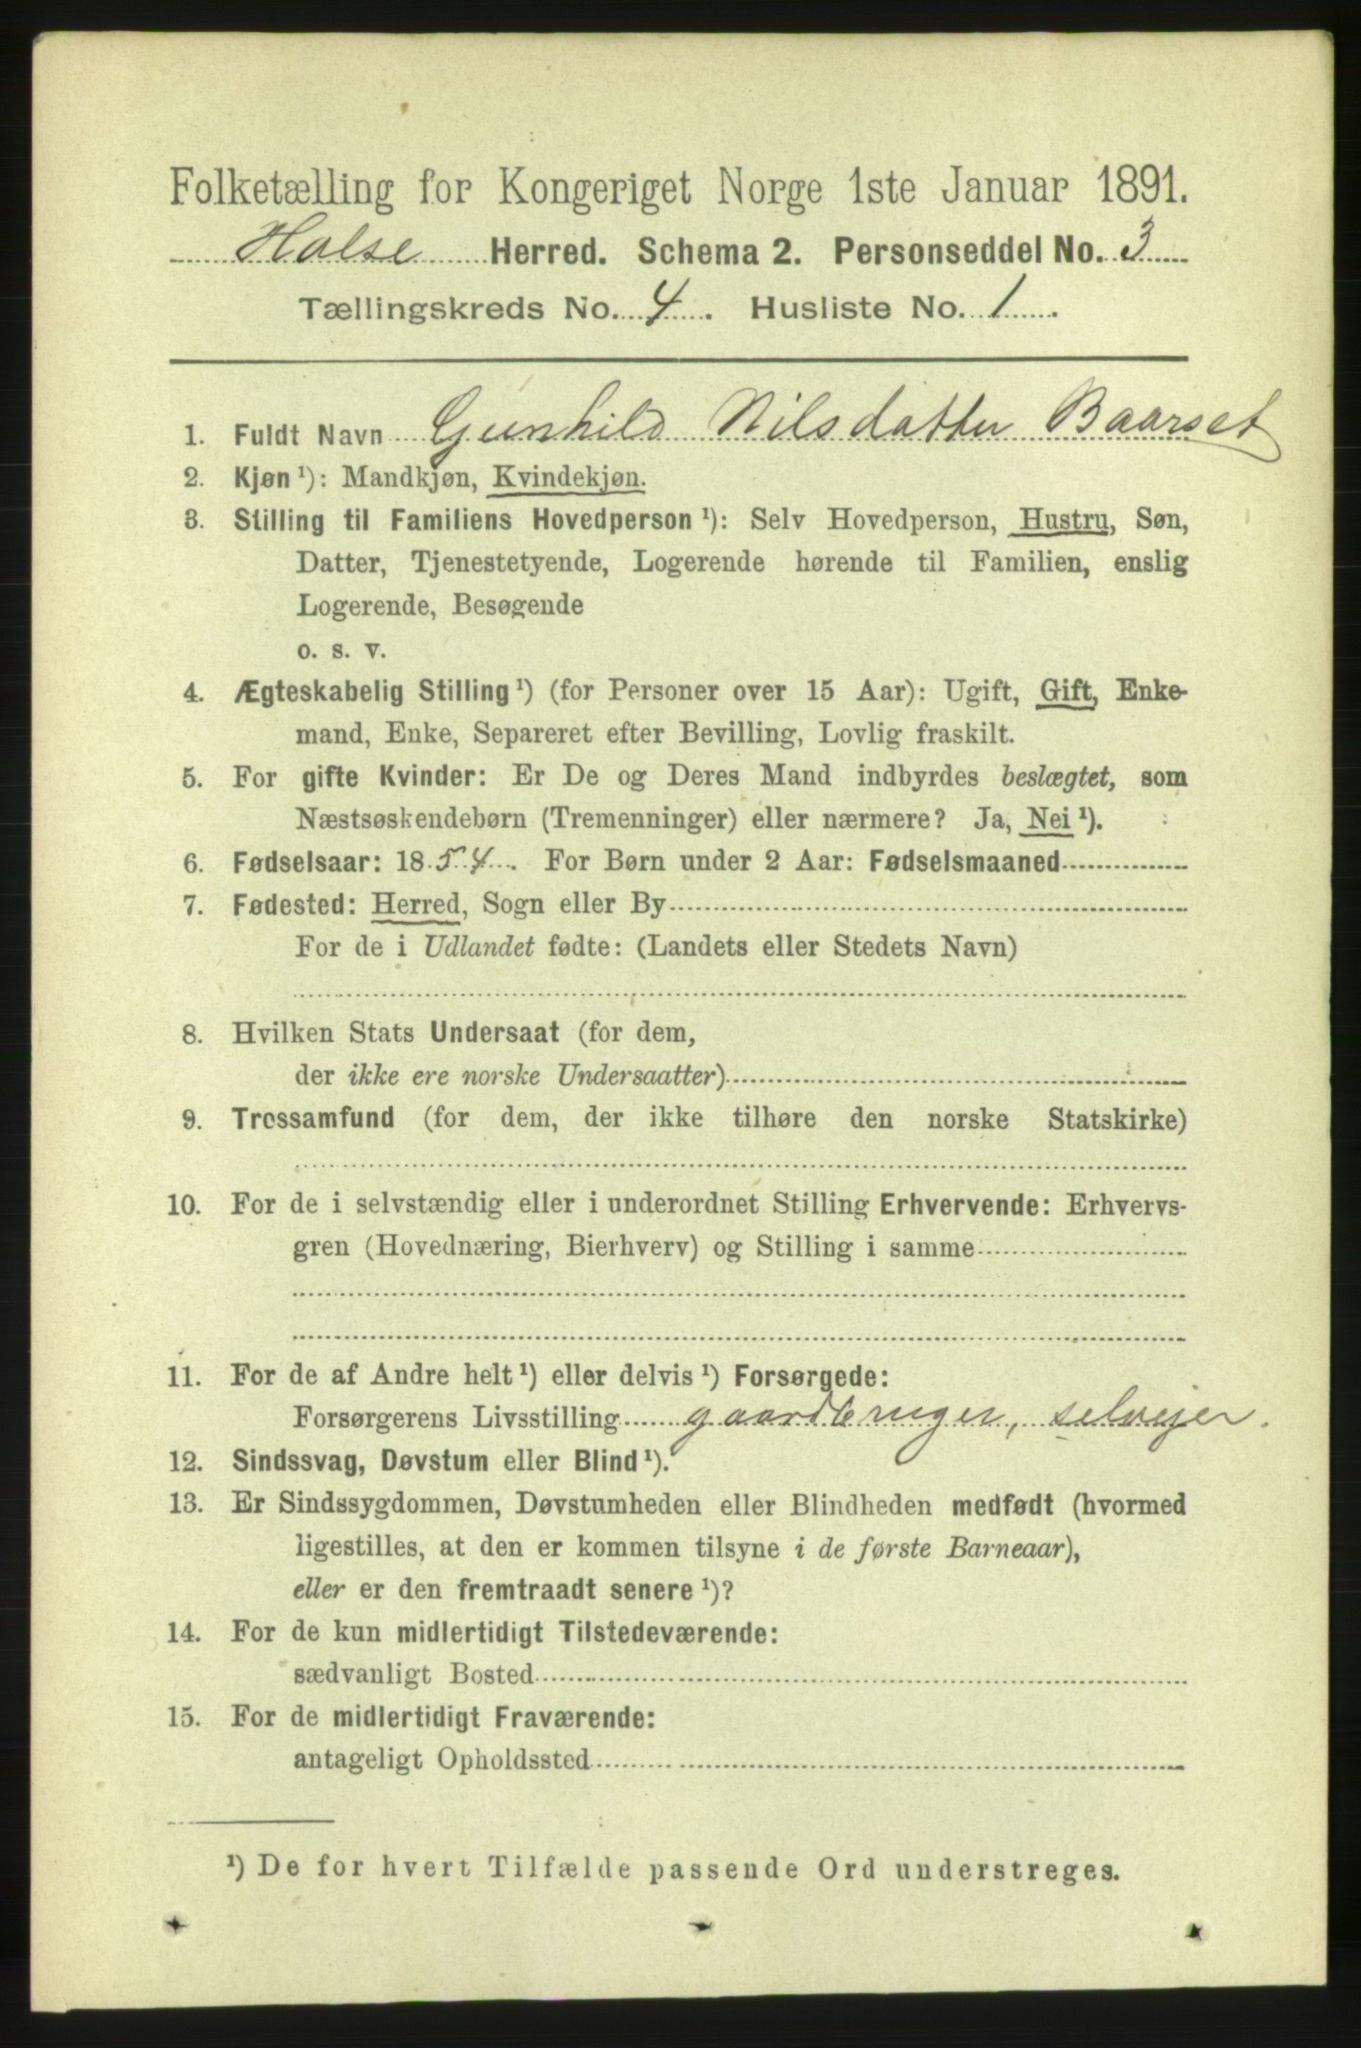 Folketælling for Kongeriget Norge 1ste Januar 1891.
Halse Herred. Schema 2. Personseddel No. 3
Tællingskreds No. 4. Husliste No. 1.
1. Fuldt Navn Gunhild Nilsdatter Baarset
2. Kjøn ¹): Mandkjøn, Kvindekjøn.
3. Stilling til Familiens Hovedperson ¹): Selv Hovedperson, Hustru, Søn,
Datter, Tjenestetyende, Logerende hørende til Familien, enslig
Logerende, Besøgende
o. s. v.
4. Ægteskabelig Stilling ¹) (for Personer over 15 Aar): Ugift, Gift, Enke-
mand, Enke, Separeret efter Bevilling, Lovlig fraskilt.
5. For gifte Kvinder: Er De og Deres Mand indbyrdes beslægtet, som
Næstsøskendebørn (Tremenninger) eller nærmere? Ja, Nei ¹).
6. Fødselsaar: 1854. For Børn under 2 Aar: Fødselsmaaned
7. Fødested: Herred, Sogn eller By
For de i Udlandet fødte: (Landets eller Stedets Navn)
8. Hvilken Stats Undersaat (for dem,
der ikke ere norske Undersaatter)
9. Trossamfund (for dem, der ikke tilhøre den norske Statskirke)
10. For de i selvstændig eller i underordnet Stilling Erhvervende: Erhvervs-
gren (Hovednæring, Bierhverv) og Stilling i samme
11. For de af Andre helt ¹) eller delvis ¹) Forsørgede:
Forsørgerens Livsstilling gaardbruger, selveier.
12. Sindssvag, Døvstum eller Blind ¹).
13. Er Sindssygdommen, Døvstumheden eller Blindheden medfødt (hvormed
ligestilles, at den er kommen tilsyne i de første Barneaar),
eller er den fremtraadt senere ¹)?
14. For de kun midlertidigt Tilstedeværende:
sædvanligt Bosted
15. For de midlertidigt Fraværende:
antageligt Opholdssted
¹) De for hvert Tilfælde passende Ord understreges.